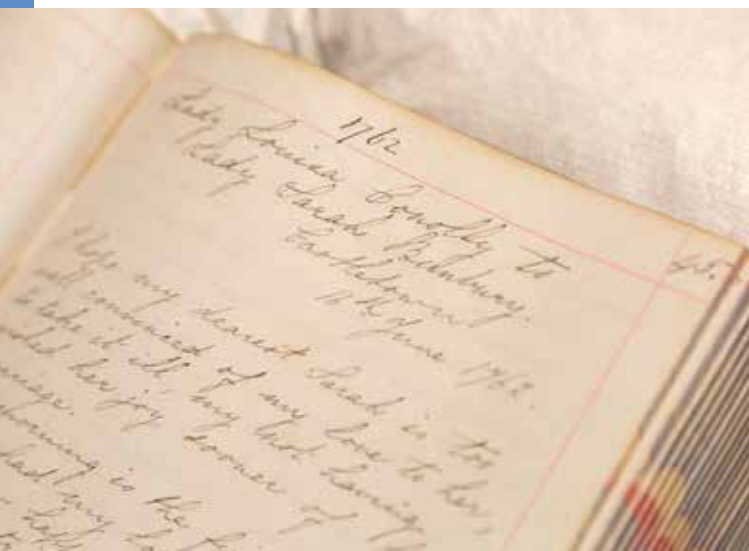 1762
45.
Lady Louisa Conolly to
Lady Sarah Bunbury.
Castletown
June 1762.
I hope my dearest Sarah is too
well convinced of my love to her,
to take it ill my not having
her joy sooner of
marriage.
morning is the
had my
half